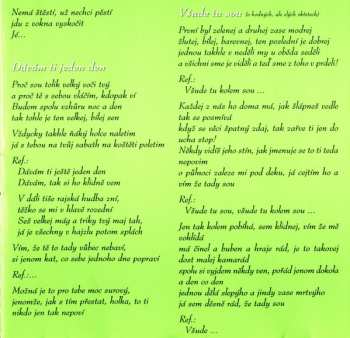 Nemá štěstí, už nechci pěstí
jdu z okna vyskočit
Jé...
Dávám ti jeden den
Proč sou tolik velký voči tvý
a proč tě s sebou vláčím, kdopak ví
Budem spolu vzhůru noc a den
tak tohle je ten velkej, bílej sen
Vždycky takhle náký holce naletim
já s tebou na tvůj sabath na koštěti poletim
Ref.:
Dávám ti ještě jeden den
Dávám, tak si ho klidně vem
V dáli tiše rajská hudba zní,
těžko se mi v hlavě rozední
Seš velkej mág a triky tvý maj tah,
já je všechny v hajzlu potom splách
Vím, že tě to tady vůbec nebaví,
si jenom kat, co sebe jednoho dne popraví
Ref.:...
Možná je to pro tebe moc surový,
jenomže, jak s tím přestat, holka, to ti
nikdo jen tak nepoví
Všude tu sou (o hodných, ale zlých skřetech)
První byl zelenej a druhej zase modrej
žlutej, bílej, barevnej, ten poslední je dobrej
jednou takhle v neděli my u oběda seděli
a všichni sme je viděli a teď sme z toho v prdeli!
Ref.:
Všude tu kolem sou ...
Každej z nás ho doma má, jak šlápneš vedle
tak se posmívá
když se věci špatný zdaj, tak zařve ti jen do
ucha stop!
Někdy vidíš jeho stín, jak jmenuje se to ti teda
nepovim
o půlnoci zaleze mi pod deku, já cejtim ho a
vim že tady sou
Ref.:
Všude tu sou, všude tu kolem sou ...
Jen tak kolem pobíhá, sem klidnej, vím že mě
vohlídá
má činel a buben a hraje rád, je to takovej
dost malej kamarád
spolu si vyjdem někdy ven, pořád jenom dokola
a den co den
jednou dělá slepýho a jindy zase mrtvýho
já sem děsně rád, že tady sou
Ref.:
Všude ...